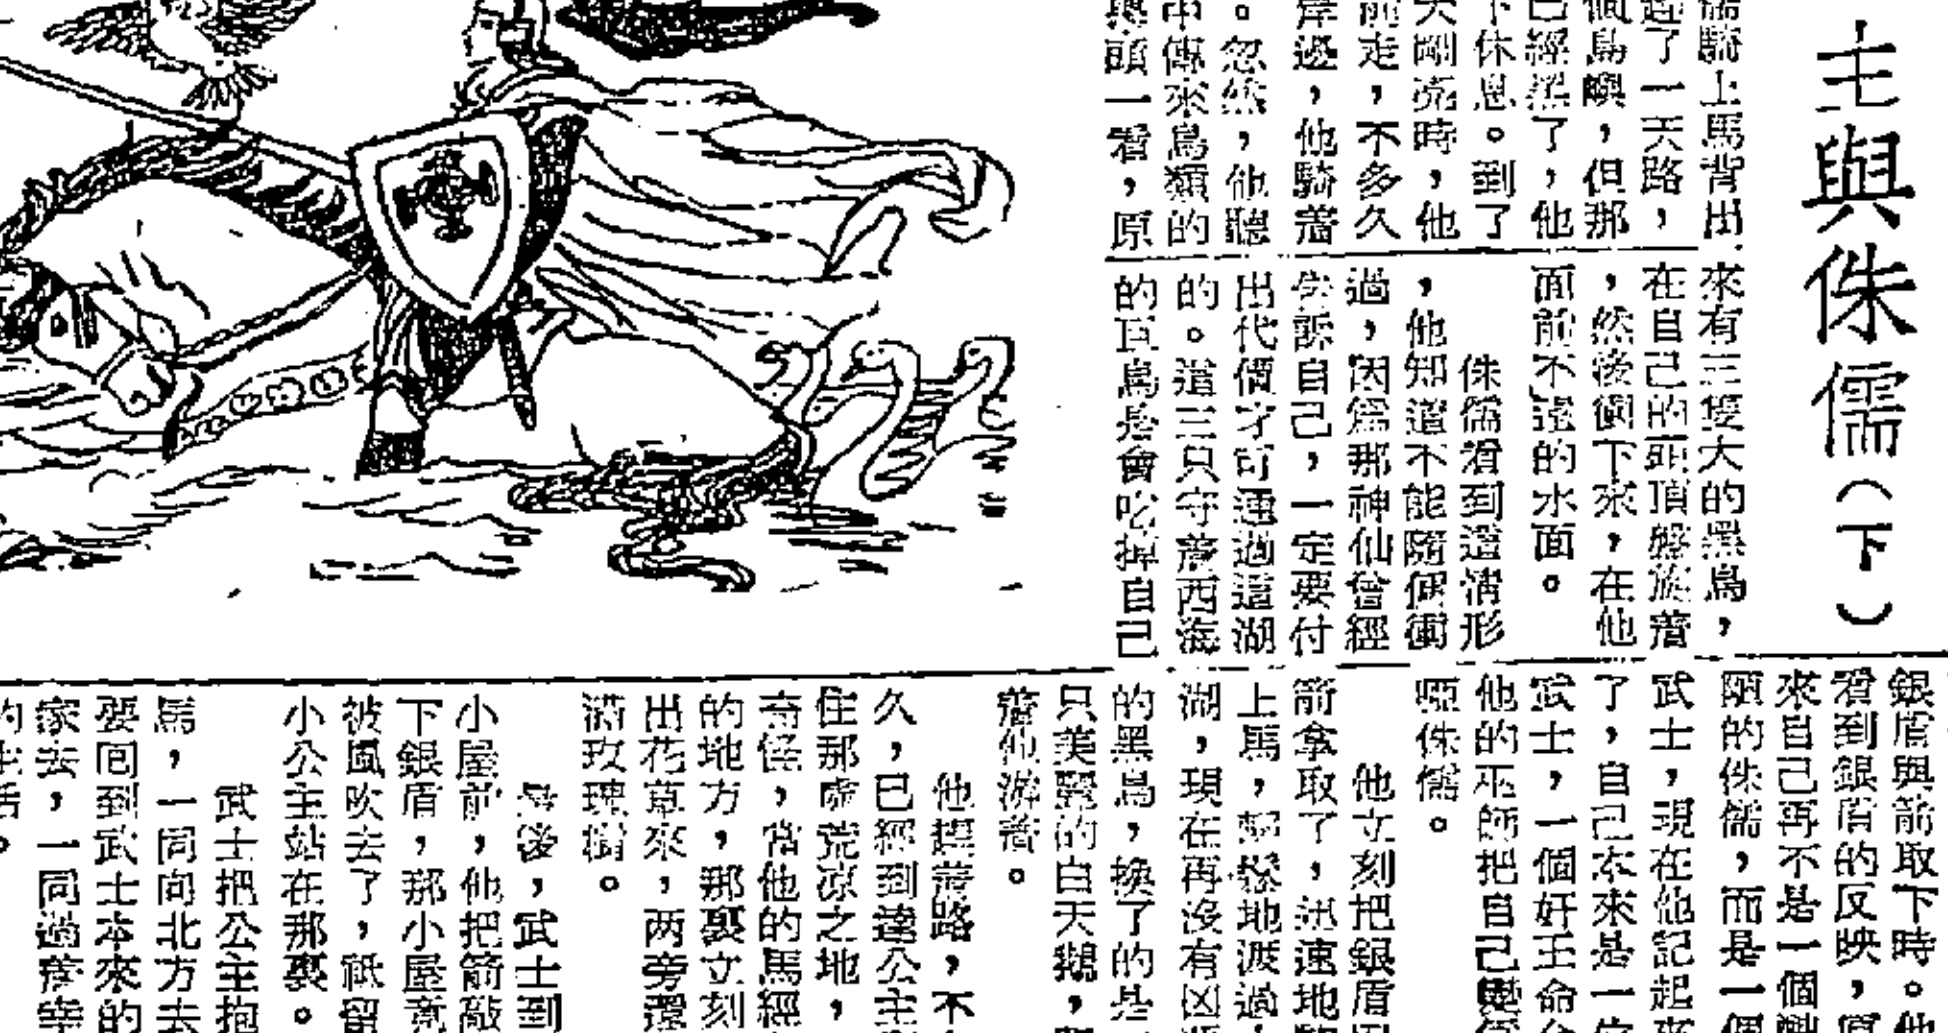 主與侏儒（下）
儒騎上馬背出
起了一天路，
個島嶼，但那
已經黑了，他
下休息。到了
天剛亮時，他
前走，不多久
岸邊，他騎着
。忽然，他聽
中傳來鳥類的
頭一看，原
來有三隻大的黑鳥，
在自己的頭頂盤旋着
，然後衝下來，在他
面前不遠的水面。
侏儒看到這情形
，他知道不能隨便衝
過，因為那神仙曾經
告訴自己，一定要付
出代價才可通過這湖
的。這三只守着西海
的巨鳥是會吃掉自己
銀盾與箭取下時。他
看到銀盾的反映，原
來自己再不是一個醜
陋的侏儒，而是一個
武士，現在他記起來
了，自己本來是一位
武士，一個奸王命令
他的巫師把自己變
啞侏儒。
他立刻把銀盾
箭拿取了，迅速地騎
上馬，輕鬆地渡過
湖，現在再沒有凶
的黑鳥，換了的是
只美麗的白天鵝，
着他游着。
他趕着路，不
久，已經到達公主
住那處荒凉之地，
奇怪，當他的馬經
的地方，那裏立刻
出花草來，两旁還
滿玫瑰樹。
最後，武士到
小屋前，他把箭敲
下銀盾，那小屋竟
被風吹去了，祗留
小公主站在那裏。
武士把公主抱
馬，一同向北方去
要囘到武士本來的
家去，一同過着幸
的生活。